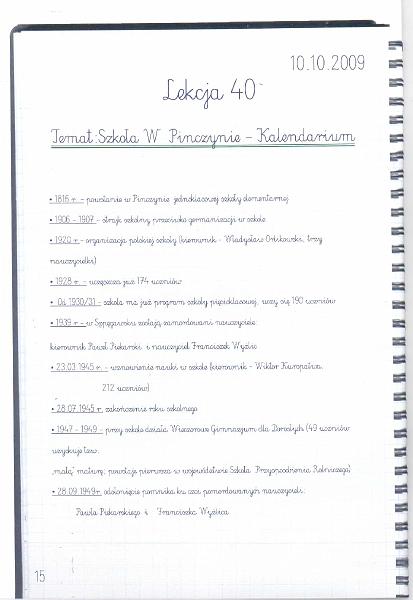 10.10.2009
Lekcja 40
Temat: Szkoła W Pinczynie - Kalendarium
• 1816 r. - powstanie w Pinczynie jednoklasowej szkoły elementarnej
• 1906 - 1907 - strajk szkolny przeciwko germanizacji w szkole
• 1920 r. - organizacja polskiej szkoły (kierownik - Władysław trzy
nauczycielki)
• 1928 r. - uczęszcza już 174 uczniów
• Od 1930/31 - szkoła ma już program szkoły pięcioklasowej, uczy się 190 uczniów
• 1939 r. - w Szpęgawsku zostają zamordowani nauczyciele:
kierownik Paweł Piekarski i nauczyciel Franciszek Wyzlic
• 23.03.1945 r. - wznowienie nauki w szkole (kierownik - Wiktor Kuropatwa,
212 uczniów)
• 28.07.1945 r. zakończenie roku szkolnego
• 1947 - 1949 - przy szkole działa Wieczorowe Gimnazjum dla Dorosłych (49 uczniów
uzyskuje tzw.
„małą" maturę; powstaje pierwsza w województwie Szkoła Przysposobienia Rolniczego)
• 28.09.1949r. odsłonięcie pomnika ku czci pomordowanych nauczycieli:
Pawła Piekarskiego i Franciszka Wyzlica
15